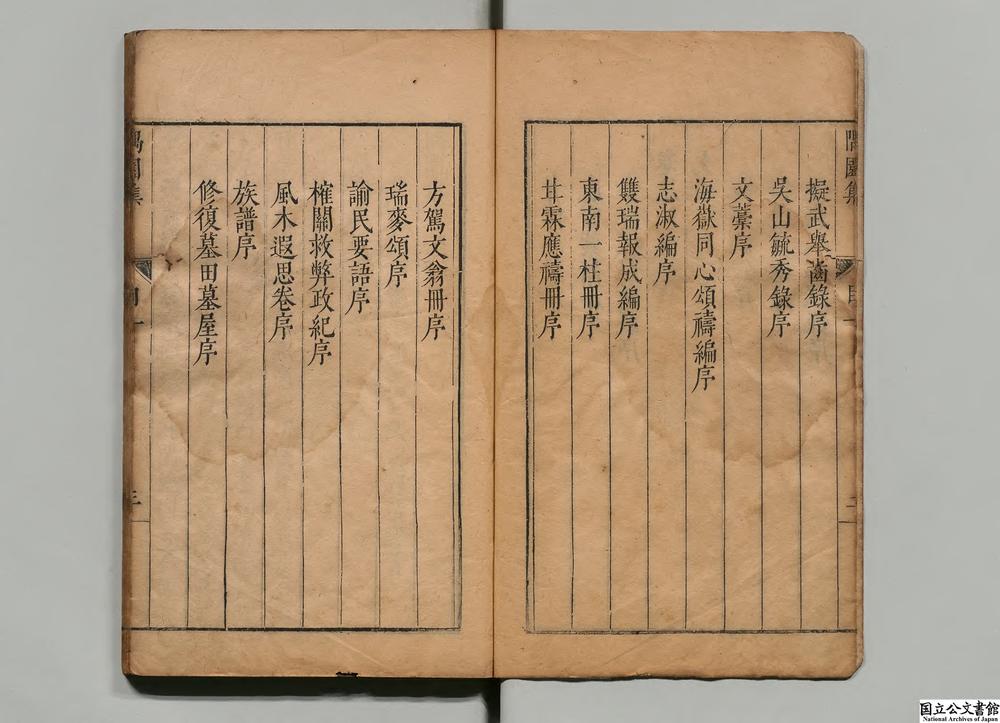 隅園集
目一
二
擬武舉齒錄序
吳山毓秀錄序
文藁序
海嶽同心頌禱編序
志淑編序
雙瑞報成編序
東南一柱冊序
甘霖應禱冊序
方駕文翁冊序
瑞麥頌序
諭民要語序
榷關救弊政紀序
風木遐思卷序
族譜序
修復墓田墓屋序
隅園集
目一
三
国立公文書館
National Archives of Japan